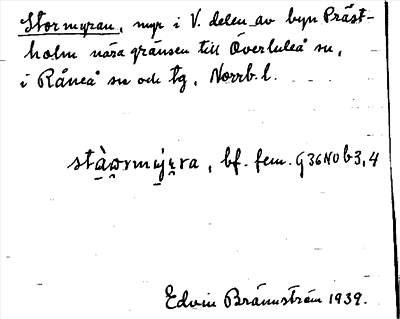 Stormyran, myr i V. delen av byn Präst-
holm nära gränsen till Överluleå sn,
i Råneå sn och tg, Norrb. l.
bf. fem. G36N0b3,4
Edvin Brännström 1939.